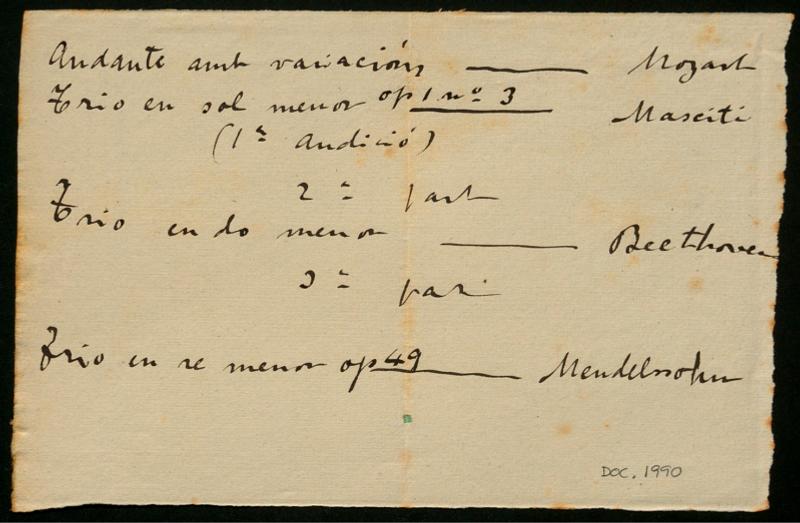 Andante amb variacións — Mozart
Trio en sol menor op 1 nº 3 — Masciti
(1ª audició)
2ª part
Trio en do menor — Beethoven
3ª part
Trio en re menor op 49 — Mendelssohn
DOC. 1990